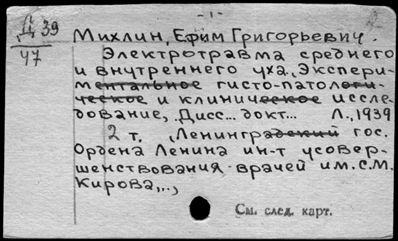 - 1 -
Д 39
47
Михлин, Ефим Григорьевич.
Электротравма среднего
и внутреннего уха. Экспери-
ментальное гисто-патологи-
ческое и клиническое иссле-
дование, Дисс... докт... Л., 1939
2 т. (Ленинградский гос.
Ордена Ленина ин-т усовер-
шенствования врачей им. С.М.
Кирова,..,
См. след. карт.